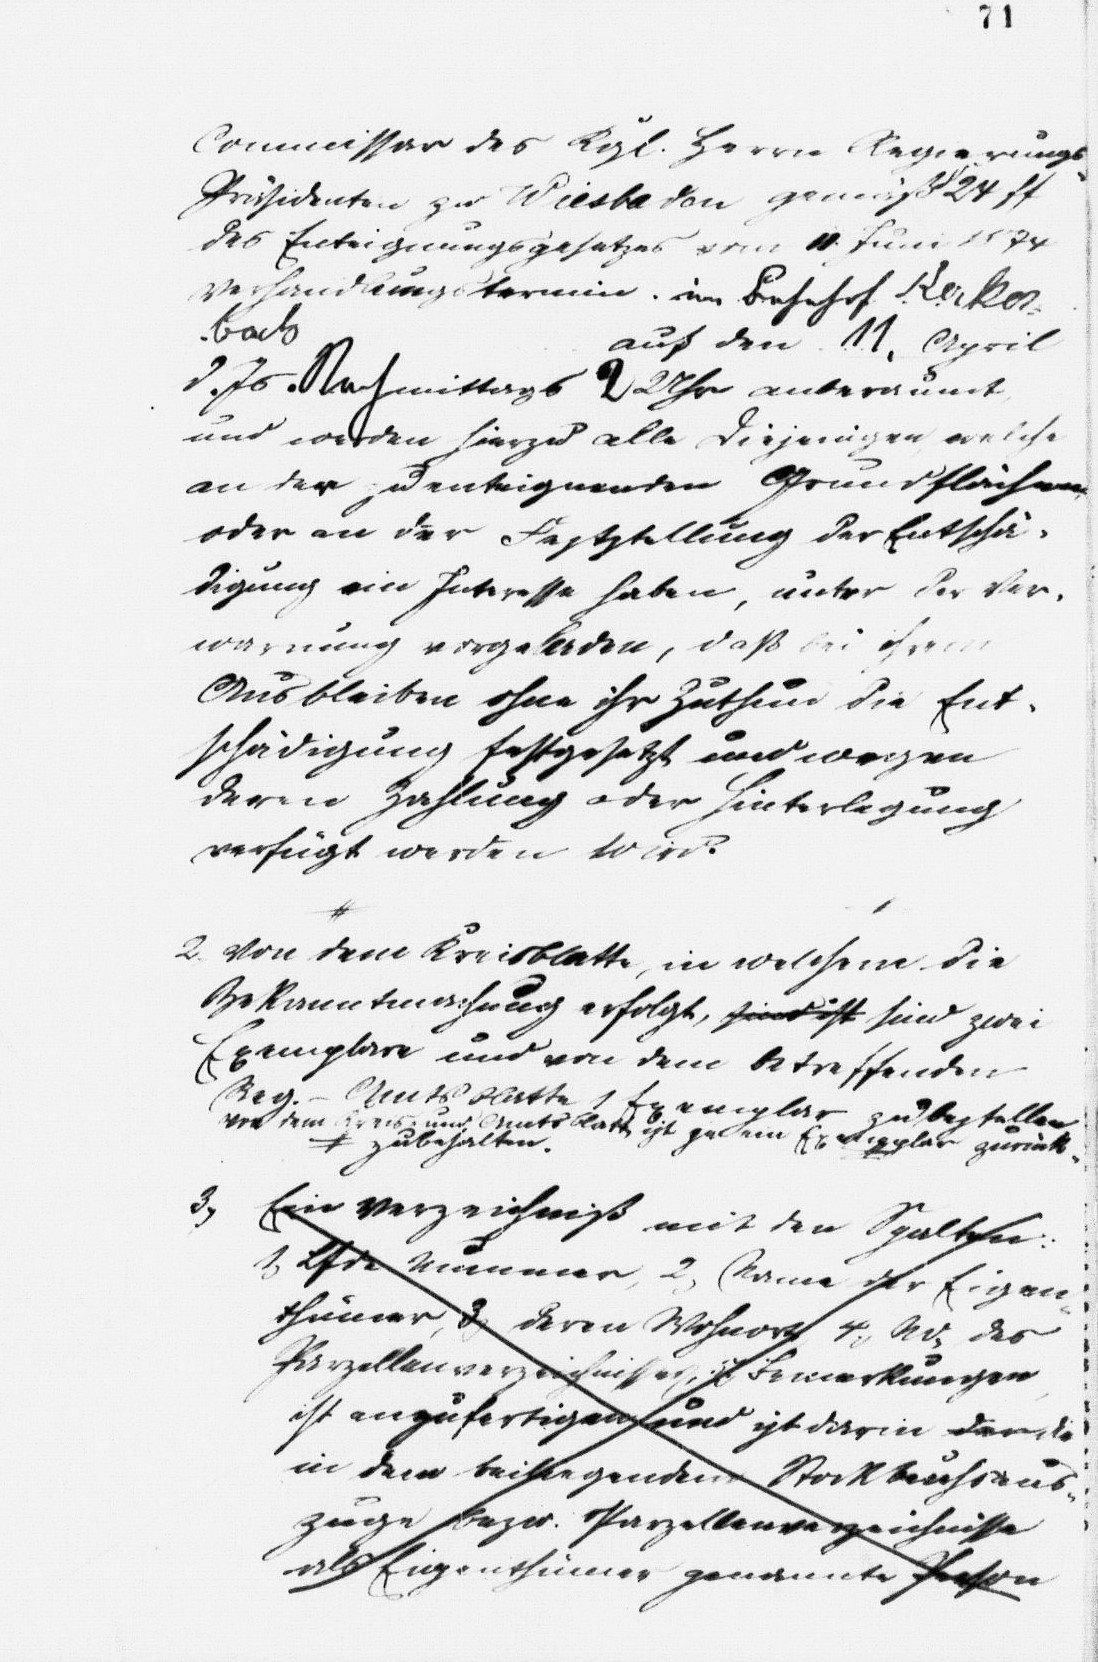 71
Commissar des Kgl. Herrn Regierungs-
Präsidenten zu Wiesbaden gemäß § 24 ff
des Enteignungsgesetzes vom 11. Juni 1874
Verhandlungstermin im Bahnhof Kerker-
bach
auf den 11. April
d. Js. Nachmittags 2 Uhr anberaumt,
und werden hierzu alle Diejenigen welche
an der zu enteignenden Grundflächen
oder an der Feststellung der Entschä-
digung ein Interesse haben, unter der Ver-
warnung vorgeladen, daß bei ihrem
Ausbleiben ohne ihr Zuthun die Ent-
schädigung festgesetzt und wegen
deren Zahlung oder Hinterlegung
verfügt werden wird.
#
2. Von dem Kreisblatte, in welchem die
Bekanntmachung erfolgt, sind ist sind zwei
Exemplare und von dem betreffenden
Reg. - Amtsblatte 1 Exemplar zu bestellen
von dem Kreis- und Amtsblatt ist je ein Exemplar zurück-
# zubehalten.
3, Ein Verzeichniß mit den Spalten:
1, Lfde Nummer, 2, Name der Eigen-
thümer, 3, deren Wohnort, 4, No. des
Parzellenverzeichnisses, 5, Bemerkungen,
ist anzufertigen und ist darin der die
in dem beiliegenden Stockbuchsaus-
zuge bezw. Parzellenverzeichnisse
als Eigenthümer genannte Person